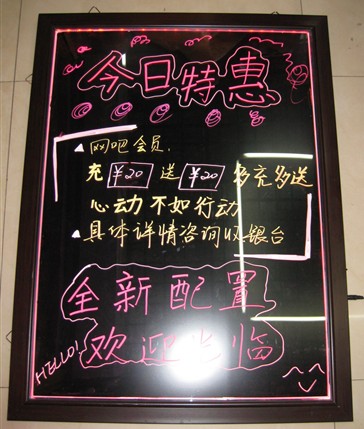 今日特惠
▲网吧会员.
充 ¥20 送 ¥20 多充多送
心动不如行动
▲具体详情咨询收银台
全新配置
欢迎光临
HELLO!